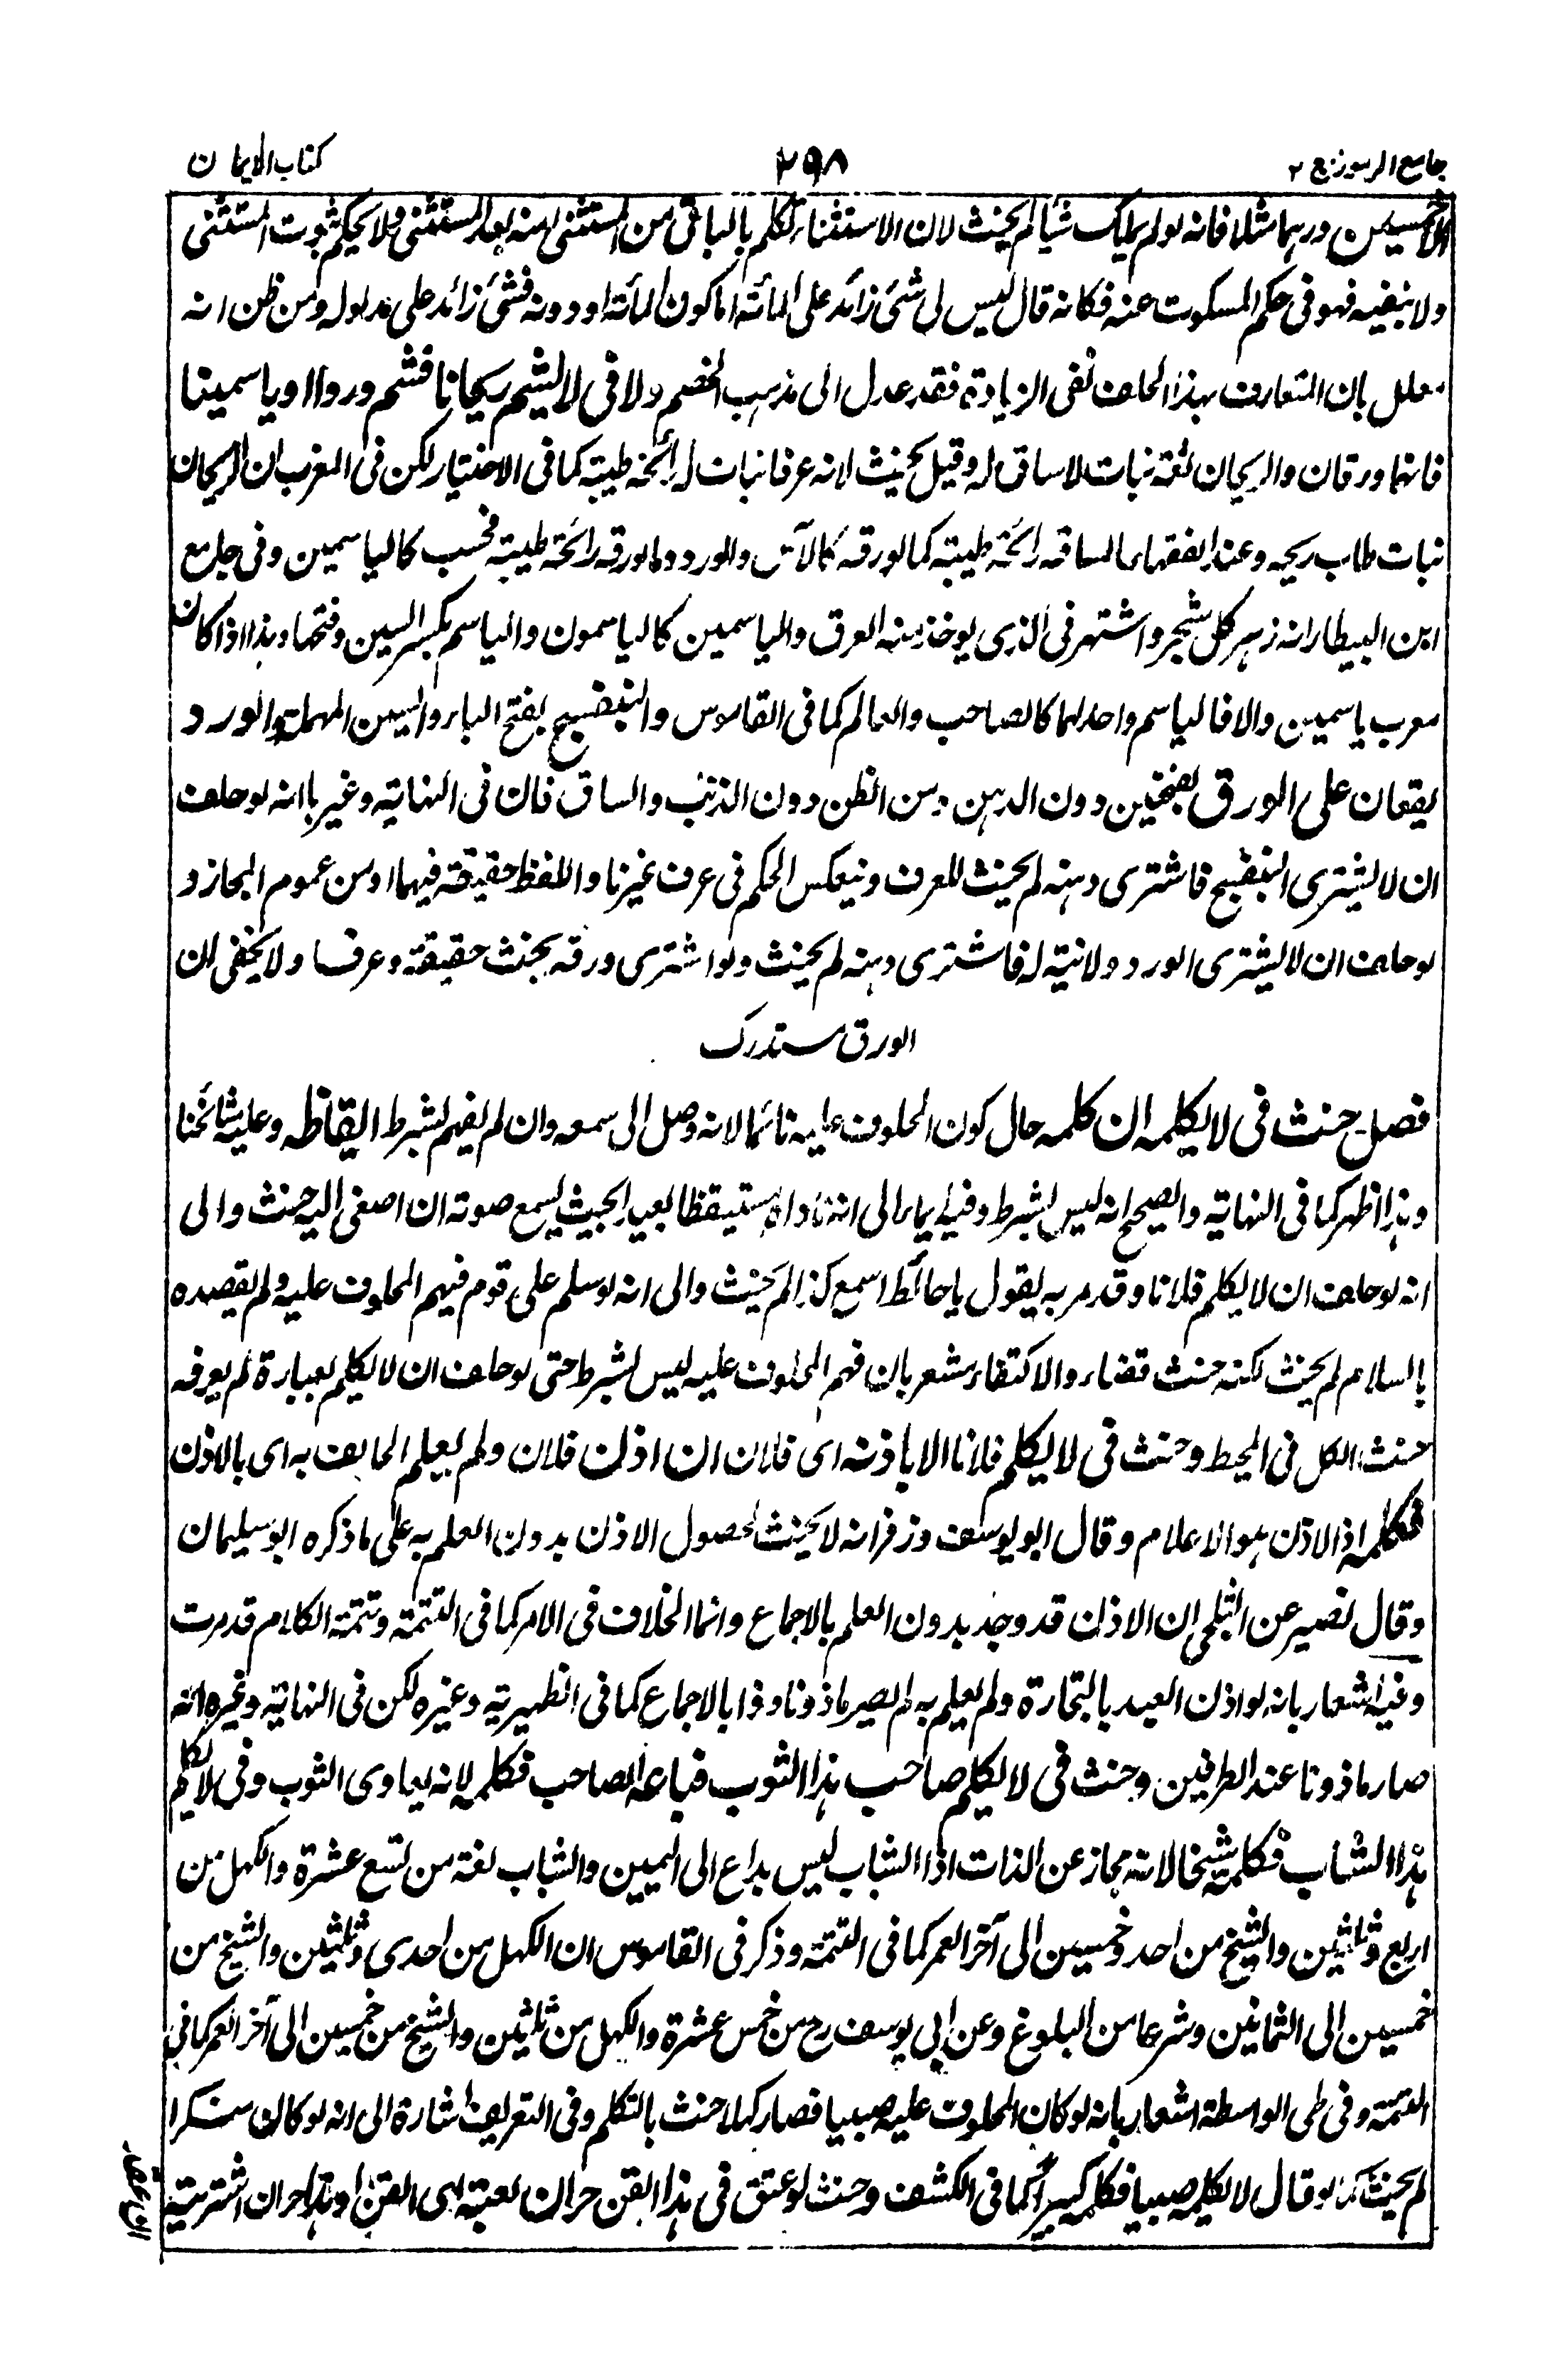 جامع الرموز ج ٢
٢٩٨
كتاب الايمان
الا خمسين درهما مثلا فانه لو لم يملك شيأ لم يحنث لان الاستثناء تكلم بالباقي من المستثنى منه بعد المستثنى ولا يحكم بثبوت المستثنى
ولا بنفيه فهو في حكم المسكوت عنه فكانه قال ليس لي شئ زائد على المأته اما كون المأتة او دونه فشئ زائد على مدلوله ومن ظن انه
معلل بان المتعارف بهذا الحلف نفى الزيادة فقد عدل الى مذهب الخصم ولا في لا يشم ريحانا فشم وردا او ياسمينا
فانهما ورقان والريحان لغة نبات لا ساق له وقيل يحنث لانه عرفا نبات له رائحة طيبة كما في الاختيار لكن في المغرب ان الريحان
نبات طاب ريحه وعند الفقهاء ما لساقه رائحة طيبة كما لورقه كالآس والورد وما لورقه رائحة طيبة فحسب كالياسمين وفي جامع
ابن البيطار انه زهر كل شجر واشتهر في الذي يوخذ منه العرق والياسمين كالياسمون والياسم بكسر السين وفتحها وهذا اذا كان
معرب ياسمين والا فالياسم واحدهما كالصاحب والعالم كما في القاموس والبنفسج بفتح الباء والسين المهملة والورد
يقعان على الورق بفتحتين دون الدهن ومن الظن دون الذنب والساق فان في النهاية وغيرها انه لو حلف
ان لا يشترى البنفسج فاشترى دهنه لم يحنث للعرف وينعكس الحكم في عرف غيرنا واللفظ حقيقة فيهما او من عموم المجاز و
لو حلف ان لا يشترى الورد ولا نية له فاشترى دهنه لم يحنث ولو اشترى ورقه يحنث حقيقة وعرفا ولا يخفى ان
الورق مستدرك
فصل حنث في لا يكلمه ان كلمه حال كون المحلوف عليه نائما لانه وصل الى سمعه وان لم يفهم بشرط ايقاظه وعليه مشائخنا
وهذا اظهر كما في النهاية والصحيح انه ليس بشرط وفيه ايماء الى انه ناداه مستيقظا بعيدا بحيث يسمع صوته ان اصغى اليه حنث والى
انه لو حلف ان لا يكلم فلانا وقد مر به يقول يا حائط اسمع كذا لم يحنث والى انه لو سلم على قوم فيهم المحلوف عليه ولم يقصده
بالسلام لم يحنث لكنه حنث قضاء والاكتفاء مشعر بان فهم المحلوف عليه ليس بشرط حتى لو حلف ان لا يكلم بعبارة لم يعرفه
حنث الكل في المحيط وحنث في لا يكلم فلانا الا باذنه اى فلان ان اذن فلان ولم يعلم الحالف به اى بالاذن
فكلمه اذ الاذن هو الاعلام وقال ابو يوسف وزفر انه لا يحنث لحصول الاذن بدون العلم به على ما ذكره ابو سليمان
وقال نصير عن البلخي ان الاذن قد وجد بدون العلم بالاجماع وانما الخلاف في الامر كما في التتمة وتتمة الكلام قد مرت
وفيه اشعار بانه لو اذن العبد بالتجارة ولم يعلم به لم يصير ماذونا وذا بالاجماع كما في الظهيرية وغيره لكن في النهاية وغيره انه
صار ماذونا عند الطرفين وحنث في لا يكلم صاحب هذا الثوب فباعه الصاحب فكلمه لانه يعاوى الثوب وفي لا يكلم
هذا الشاب فكلمه شيخا لانه مجاز عن الذات اذ الشباب ليس بداع الى اليمين والشباب لغة من تسع عشرة والكهل من
اربع وثلثين والشيخ من احد وخمسين الى آخر العمر كما في التتمة وذكر في القاموس ان الكهل من احدى وثلثين والشيخ من
خمسين الى الثمانين وشرعا من البلوغ وعن ابي يوسف رح من خمس عشرة والكهل من ثلثين والشيخ من خمسين الى آخر العمر كما في
التتمة وفي طي الواسطة اشعار بانه لو كان المحلوف عليه صبيا فصار كهلا حنث بالتكلم وفي التعريف اشارة الى انه لو كان منكرا
لم يحنث كما لو قال لا يكلم صبيا فكلم كبيرا كما في الكشف وحنث لو عتق في هذا القن حر ان بعته اى القن او هذا حر ان اشتريته